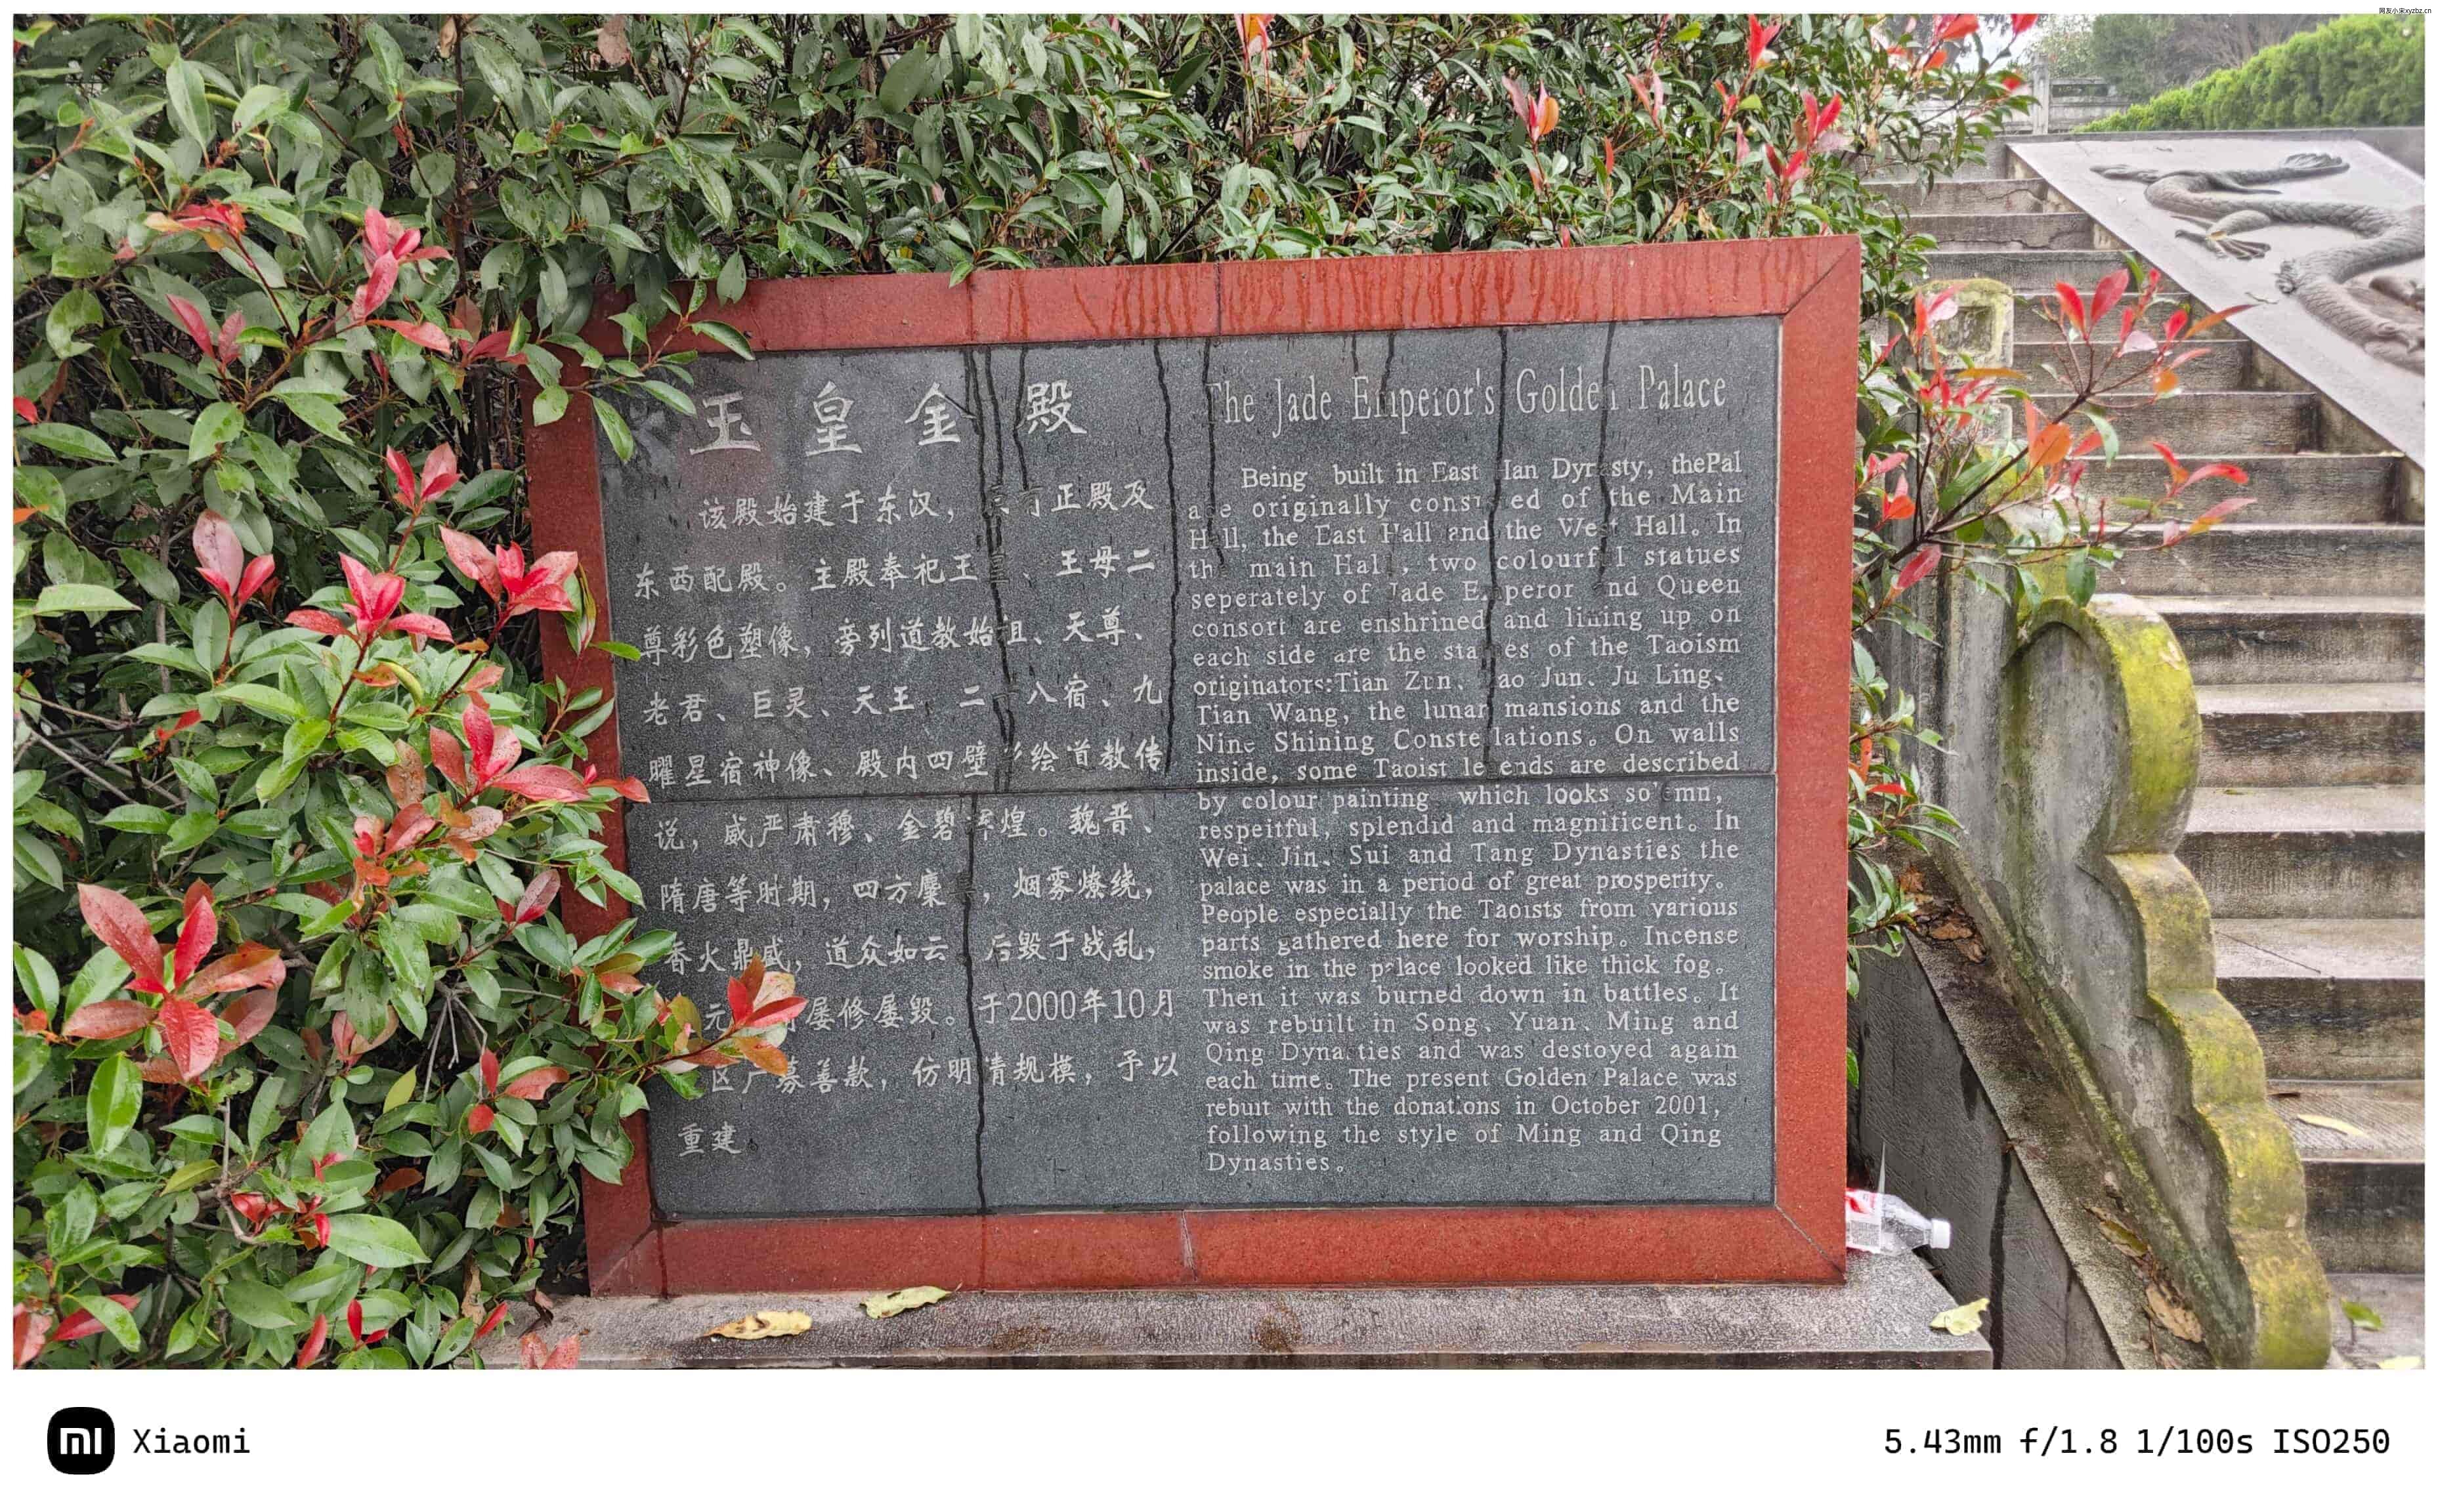 网友小宋xyzbz.cn
玉皇金殿
该殿始建于东汉,正殿及
东西配殿。主殿奉祀玉、王母二
尊彩色塑像,旁列道教始祖、天尊、
老君、巨灵、天王 二 八宿、九
曜星宿神像、殿内四壁彩绘道教传
说,威严肃穆、金碧辉煌。魏晋、
隋唐等时期,四方麇,烟雾燎绕,
香火鼎盛,道众如云 后毁于战乱,
元 屡修屡毁。于2000年10月
区 募善款,仿明清规模,予以
重建。
The Jade Emperor's Golden Palace
Being built in East Han Dynasty, thePal
originally of the Main
Hall, the East Hall and the West Hall。In
main Hall, two statues
seperately of Jade Emperor and Queen
consort are enshrined and lining up on
each side are the statues of the Taoism
originators:Tian Zun、 Jun、Ju Ling、
Tian Wang, the lunar mansions and the
Nine Shining Constellations。On walls
inside, some Taoist legends are described
by colour painting which looks solemn,
respeitful, splendid and magnificent。In
Wei、Jin、Sui and Tang Dynasties the
palace was in a period of great prosperity。
People especially the Taoists from various
parts gathered here for worship。Incense
smoke in the palace looked like thick fog。
Then it was burned down in battles。It
was rebuilt in Song、Yuan、Ming and
Qing Dynasties and was destoyed again
each time。The present Golden Palace was
rebuit with the donations in October 2001,
following the style of Ming and Qing
Dynasties。
mi Xiaomi
5.43mm f/1.8 1/100s ISO250